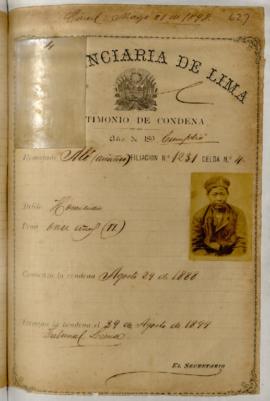 629
NCIARIA DE LIMA
TIMONIO DE CONDENA
Año de 189 Cumplió
Rematado Alí (asiático) FILIACION N.º 1231 CELDA N.º 4
Delito Homicidio
Pena once años (11)
Comienza la condena Agosto 29 de 1888
Termina la condena el 29 de Agosto de 1899
Tribunal Lima
EL SECRETARIO